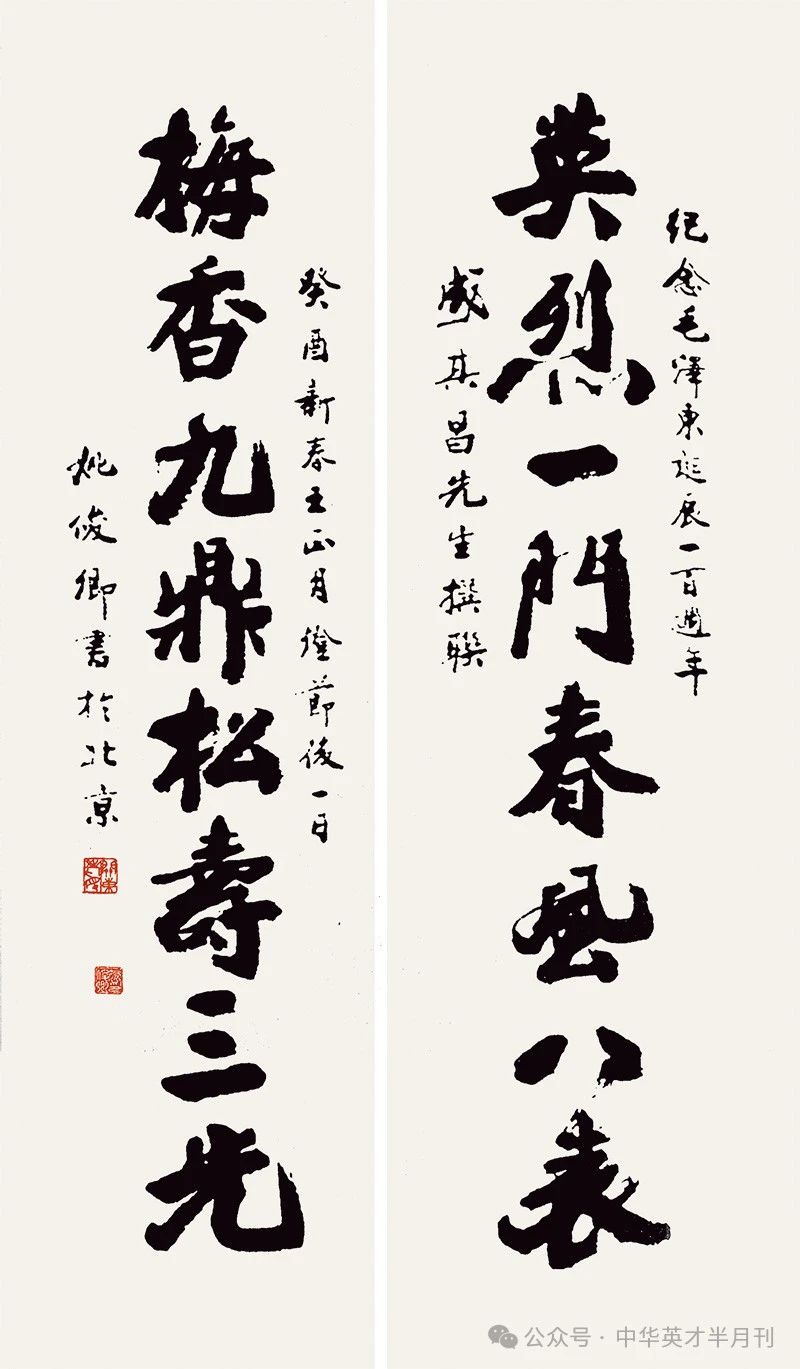 紀念毛澤東誕辰一百週年
英烈一門春風八表
其昌先生撰聯
癸酉新春王正月燈節後一日
梅香九鼎松壽三光
姚俊卿書於北京
公众号·中华英才半月刊